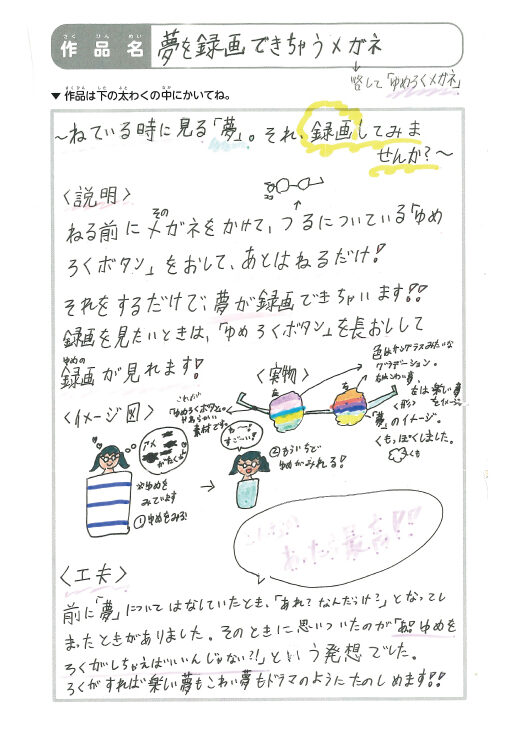 作品名 夢を録画できちゃうメガネ
→略して「ゆめろくメガネ」
▼作品は下の太わくの中にかいてね。
～ねている時に見る「夢」。それ、録画してみま
せんか?～
〈説明〉
ねる前にそのメガネをかけて、つるについている「ゆめ
ろくボタン」をおして、あとはねるだけ!
それをするだけで、夢が録画できちゃいます!!
録画を見たいときは、「ゆめろくボタン」を長おしして
ゆめの
録画が見れます!
〈実物〉
色はサングラスみたいな
グラデーション。
右はこわい夢、
左は楽しい夢
をイメージ
左
右
〈形〉
「夢」のイメージ。
くもっぽくしました。
くも
これが
「ゆめろくボタン」。
やわらかい
素材です。
〈イメージ図〉
アメ
がたくさん
※ゆめを
みています
①ゆめをみる
→
わ～!
すご～い!
②もういちど
ゆめがみれる!
〈工夫〉
前に「夢」についてはなしていたとき、「あれ?なんだっけ?」となってし
まったときがありました。そのときに思いついたのが「ゆめを
ろくがしちゃえばいいんじゃない?!」という発想でした。
ろくがすれば楽しい夢もこわい夢もドラマのようにたのしめます!!